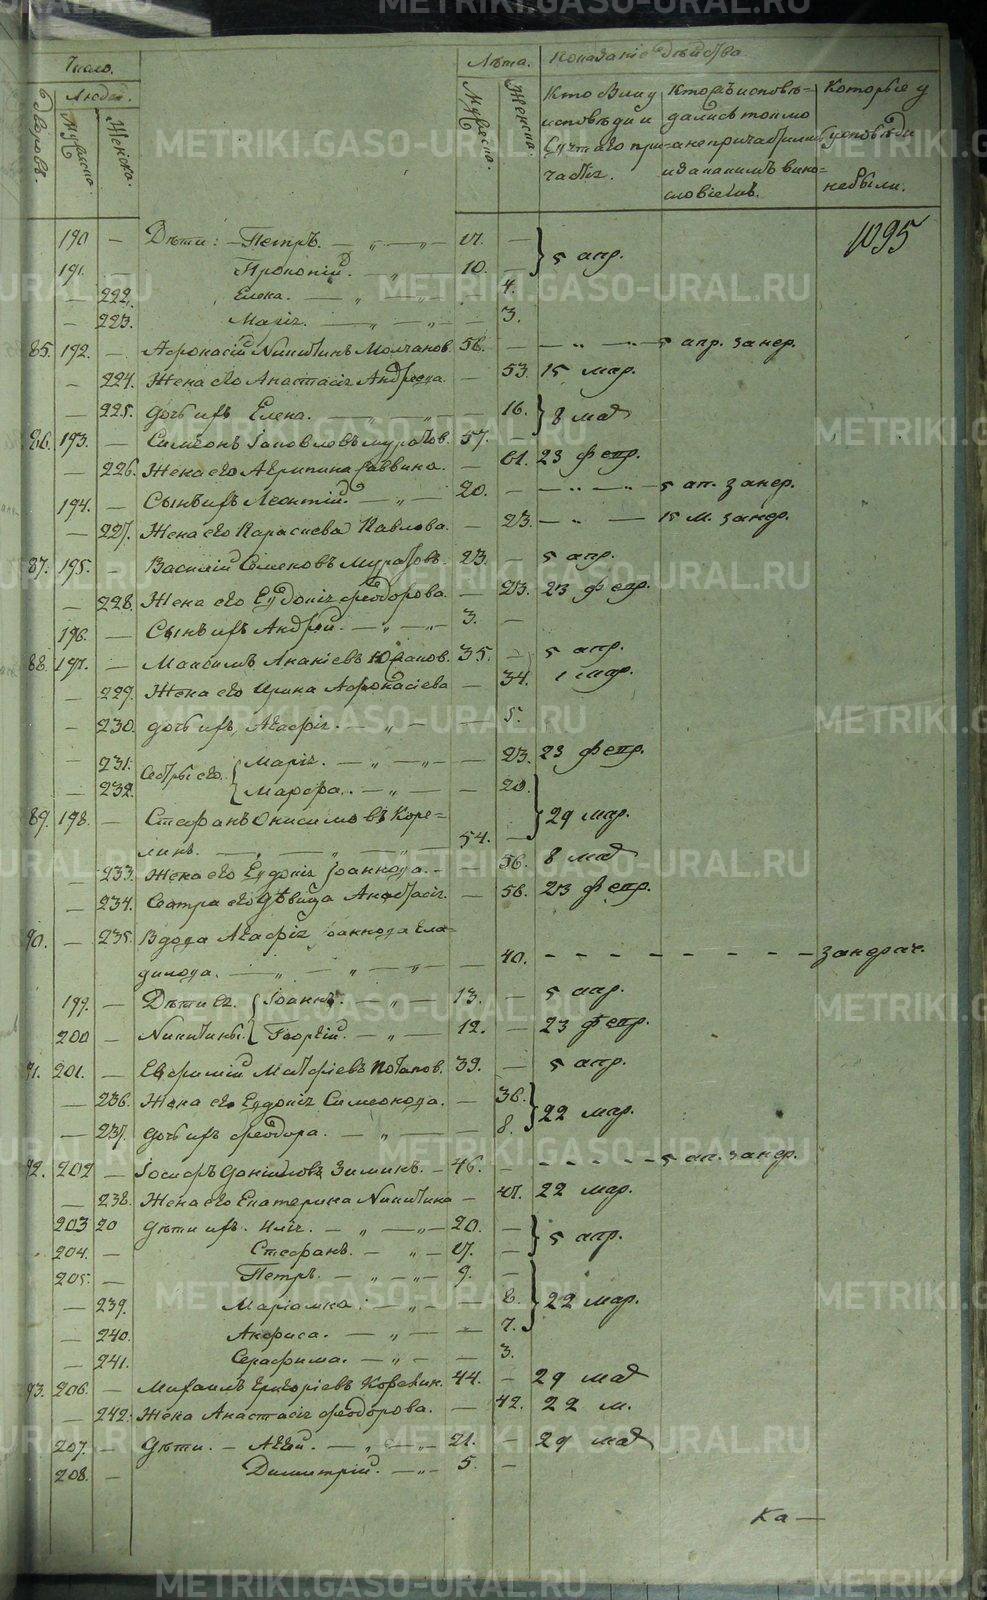 METRIKI.GASO-URAL.RU METRIKI.GASO-URAL.RU
Число. Лѣта. Показаніе дѣйства
Людей. Кто были у исповѣди и святаго причастія. Которые исповѣдались токмо а не причастились и за какимъ винословіемъ. Которые у исповѣди небыли.
дворовъ. Мужеска. Женска. Мужеска. Женска.
1095
190 — Дѣти: — Петръ. — „ — „ — 17. — } 5 апр.
191. Прокопій. — „ 10. —
— 222. Елена. — „ — „ — — 4.
— 223. Марія. — „ — „ — — 3.
85. 192. — Афонасій Никитинъ Молчановъ. 56. — — „ — 5 апр. за нер.
— 224. Жена его Анастасія Андреева. — 53. 15 мар.
— 225. дочь ихъ Елена. — „ — — 16. } 8 мая
86. 193. — Симеонъ Іаковлевъ Муратовъ. 57. —
— 226. Жена его Агрипина Саввина. — 61. 23 февр.
194. — Сынъ ихъ Леонтій. — „ — 20. — — „ — „ — 5 ап. за нер.
— 227. Жена его Параскева Павлова. — 23. — „ — 15 м. за нер.
87. 195. — Василій Семеновъ Муратовъ. 23. — 5 апр.
— 228. Жена его Евдокія Феодорова. — 23. 23 февр.
196. — Сынъ ихъ Андрей. — „ — „ — 3. —
88. 197. — Максимъ Ананіевъ 35. — 5 апр.
— 229. Жена его Ирина Афонасіева — 34. 1 мар.
— 230. дочь ихъ Агафія. — „ — — 5.
— 231. Сестры его. { Марія. — „ — „ — — 23. 23 февр.
— 232. { Марфа. — „ — — 20. } 29 мар.
89. 198. — Стефанъ Онисимовъ Коре=
линъ. — „ — „ — 54. —
— 233. Жена его Евдокія Іоаннова. — — 56. 8 мая
— 234. Сестра его дѣвица Анастасія. — 56. 23 февр.
90. — 235. Вдова Агафія Іоаннова
— „ — „ — „ — — 40. — — — — — —
199. — Дѣти ея { Іоаннъ. — „ — 13. — 5 апр.
200 — Никитины. { Георгій. — „ — 12. — 23 февр.
91. 201. — Евфимій Матфіевъ Потаповъ. 39. — 5 апр.
— 236. Жена его Евдокія Симеонова. — 36. } 22 мар.
— 237. дочь ихъ Феодора. — „ — — 8.
92. 202 — Іосифъ Даніиловъ Зиминъ. — 46. — — — — — — 5 ап. за нер.
— 238. Жена его Екатерина Никитина — 47. 22 мар.
203 20 дѣти ихъ. Илія. — „ — „ — 20. — } 5 апр.
204. — Стефанъ. — „ — 17. —
205. — Петръ. — „ — „ — 9. — } 22 мар.
— 239. Маріамна. — „ — — 8.
— 240. Анфиса. — „ — — 7.
— 241. Серафима. — „ — — 3.
93. 206. — Михаилъ Григоріевъ 44. — 29 мая
— 242. Жена Анастасія Феодорова. — 42. 22 м.
207. — дѣти. — — „ — „ — 21. — 29 мая
208. — Димитрій. — „ — 5. —
Ка—
METRIKI.GASO-URAL.RU METRIKI.GASO-URAL.RU